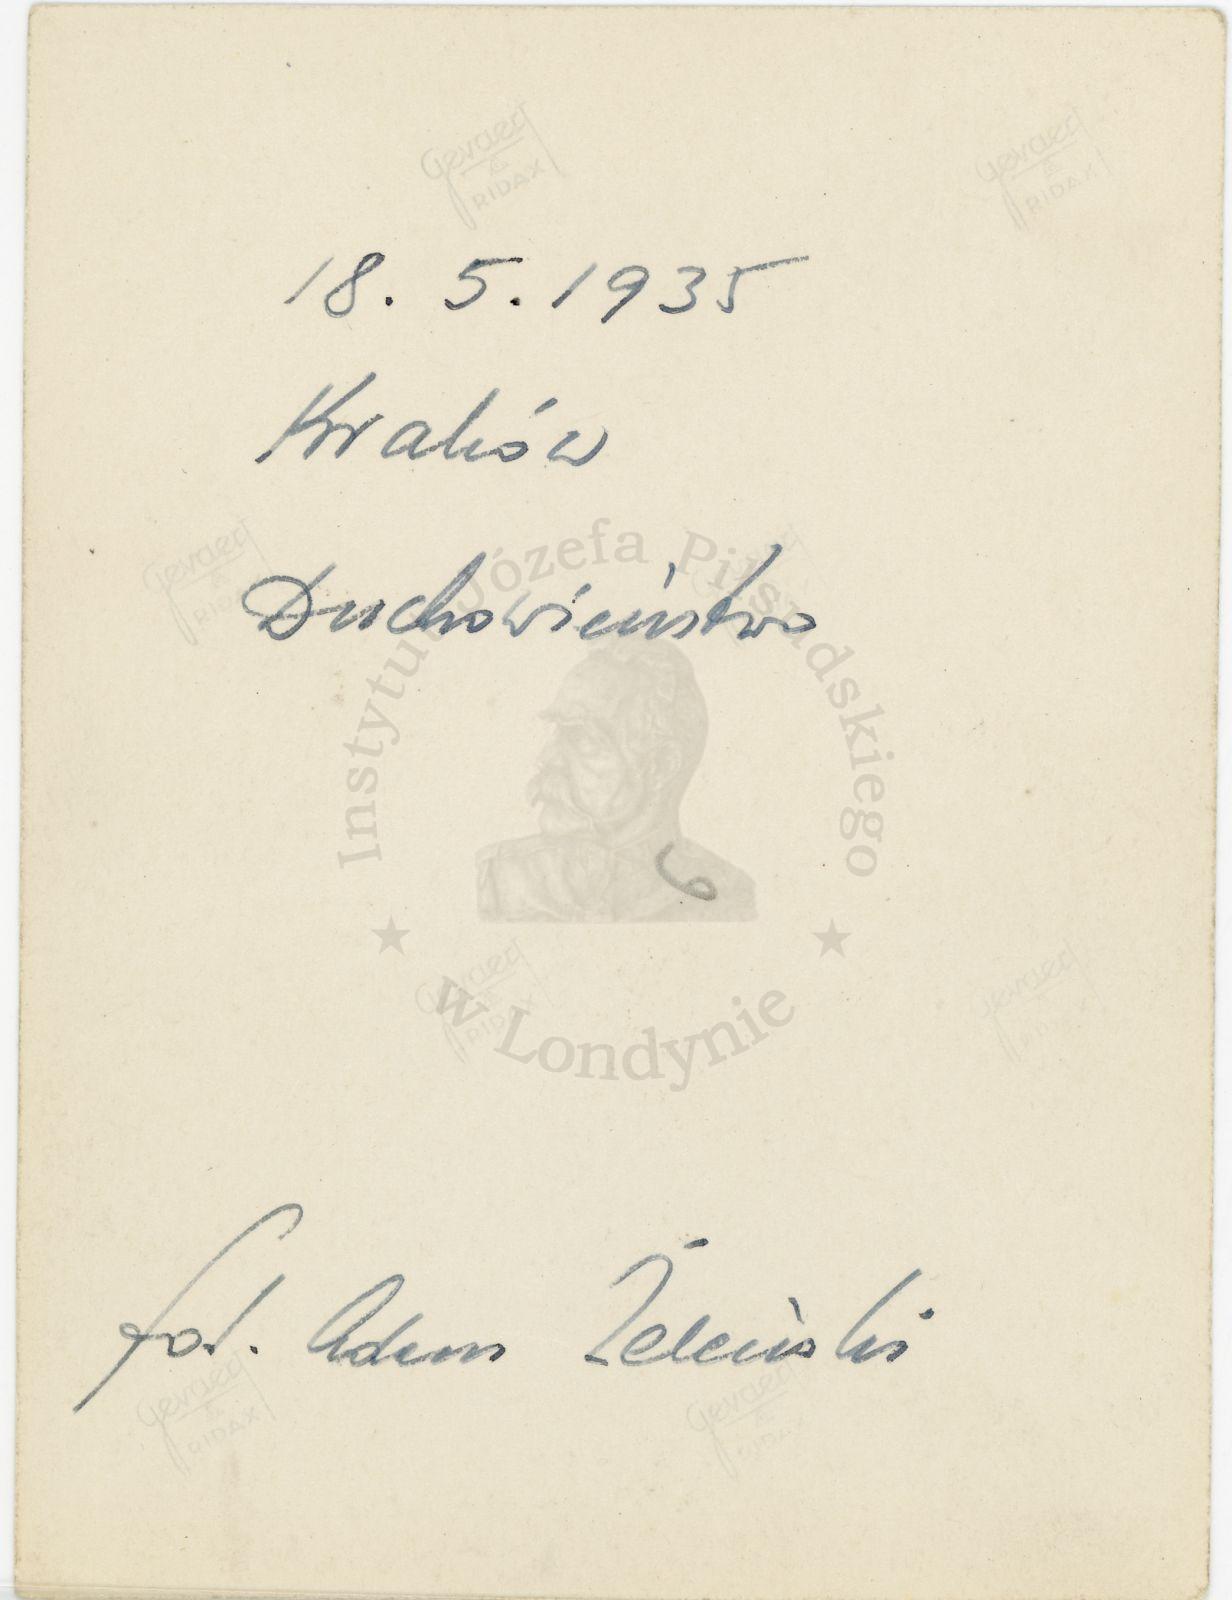 Gevaert RIDAX
Gevaert RIDAX
18. 5. 1935
Kraków
Gevaert RIDAX
Duchowieństwo
Instytut Józefa Piłsudskiego
6
w Londynie
Gevaert RIDAX
Gevaert RIDAX
fot. Adam Żeleński
Gevaert RIDAX
Gevaert RIDAX